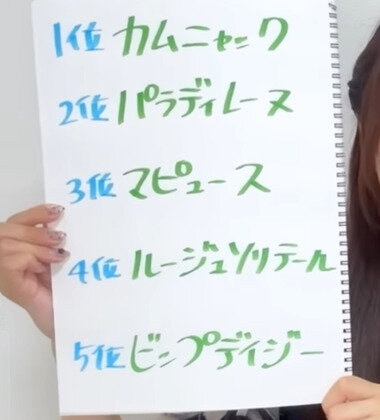 1位 カムニャック
2位 パラディレーヌ
3位 マピュース
4位 ルージュソリテール
5位 ビップデイジー